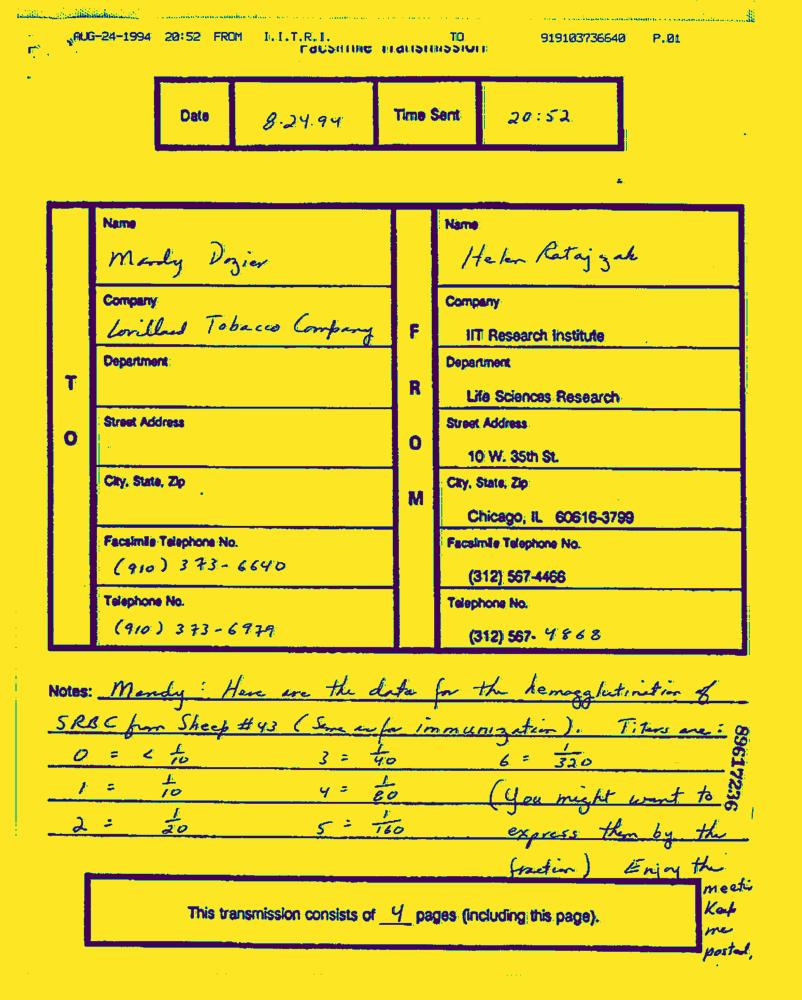 AUG-24-1994 20:52 FROM I.I.T.R.I. TO 919103736640 P.01
Facsimile Transmission
Date 8-24-94 Time Sent 20:52
TO
Name
Mandy Dozier
Company
Lorillard Tobacco Company
Department
Street Address
City, State, Zip
Facsimile Telephone No.
(910) 373-6640
Telephone No.
(910) 373-6979
FROM
Name
Helen Ratajczak
Company
IIT Research Institute
Department
Life Sciences Research
Street Address
10 W. 35th St.
City, State, Zip
Chicago, IL 60616-3799
Facsimile Telephone No.
(312) 567-4466
Telephone No.
(312) 567-4868
Notes: Mandy: Here are the data for the hemagglutination of
SRBC from Sheep #43 (Same as for immunization). Titers are:
0 = < 1/10 3 = 1/40 6 = 1/320
1 = 1/10 4 = 1/80 (You might want to
2 = 1/20 5 = 1/160 express them by the
fraction) Enjoy the
meetin
Keep
me
posted,
This transmission consists of 4 pages (including this page).
89617236